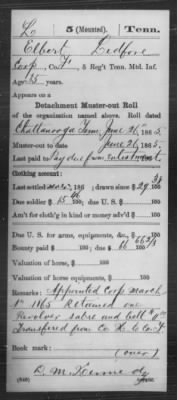 L | 5 (Mounted). | Tenn.
Elbert Ledford
Corp, Co. F, 5 Reg't Tenn. Mtd. Inf.
Age 25 years.
Appears on a
Detachment Muster-out Roll
of the organization named above. Roll dated
Chattanooga Tenn June 26, 1865.
Muster-out to date June 26, 1865.
Last paid to Pay due from enlistment
Clothing account:
Last settled , 186 ; drawn since $ 29 100
Due soldier $ 15 100; due U.S. $ 100
Am't for cloth'g in kind or money adv'd $ 100
Due U.S. for arms, equipments, &c., $ 100
Bounty paid $ 100; due $ 66 66⅔ 100
Valuation of horse, $ 100
Valuation of horse equipments, $ 100
Remarks: Appointed Corp March
1 1865 Retained one
Revolver sabre and belt $
Transfered from Co H. to Co. F
Book mark:
(over)
Copyist.